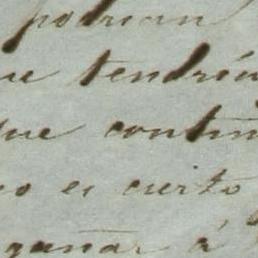 podrian
ue tendria
que contin
o es cierto
gañar á